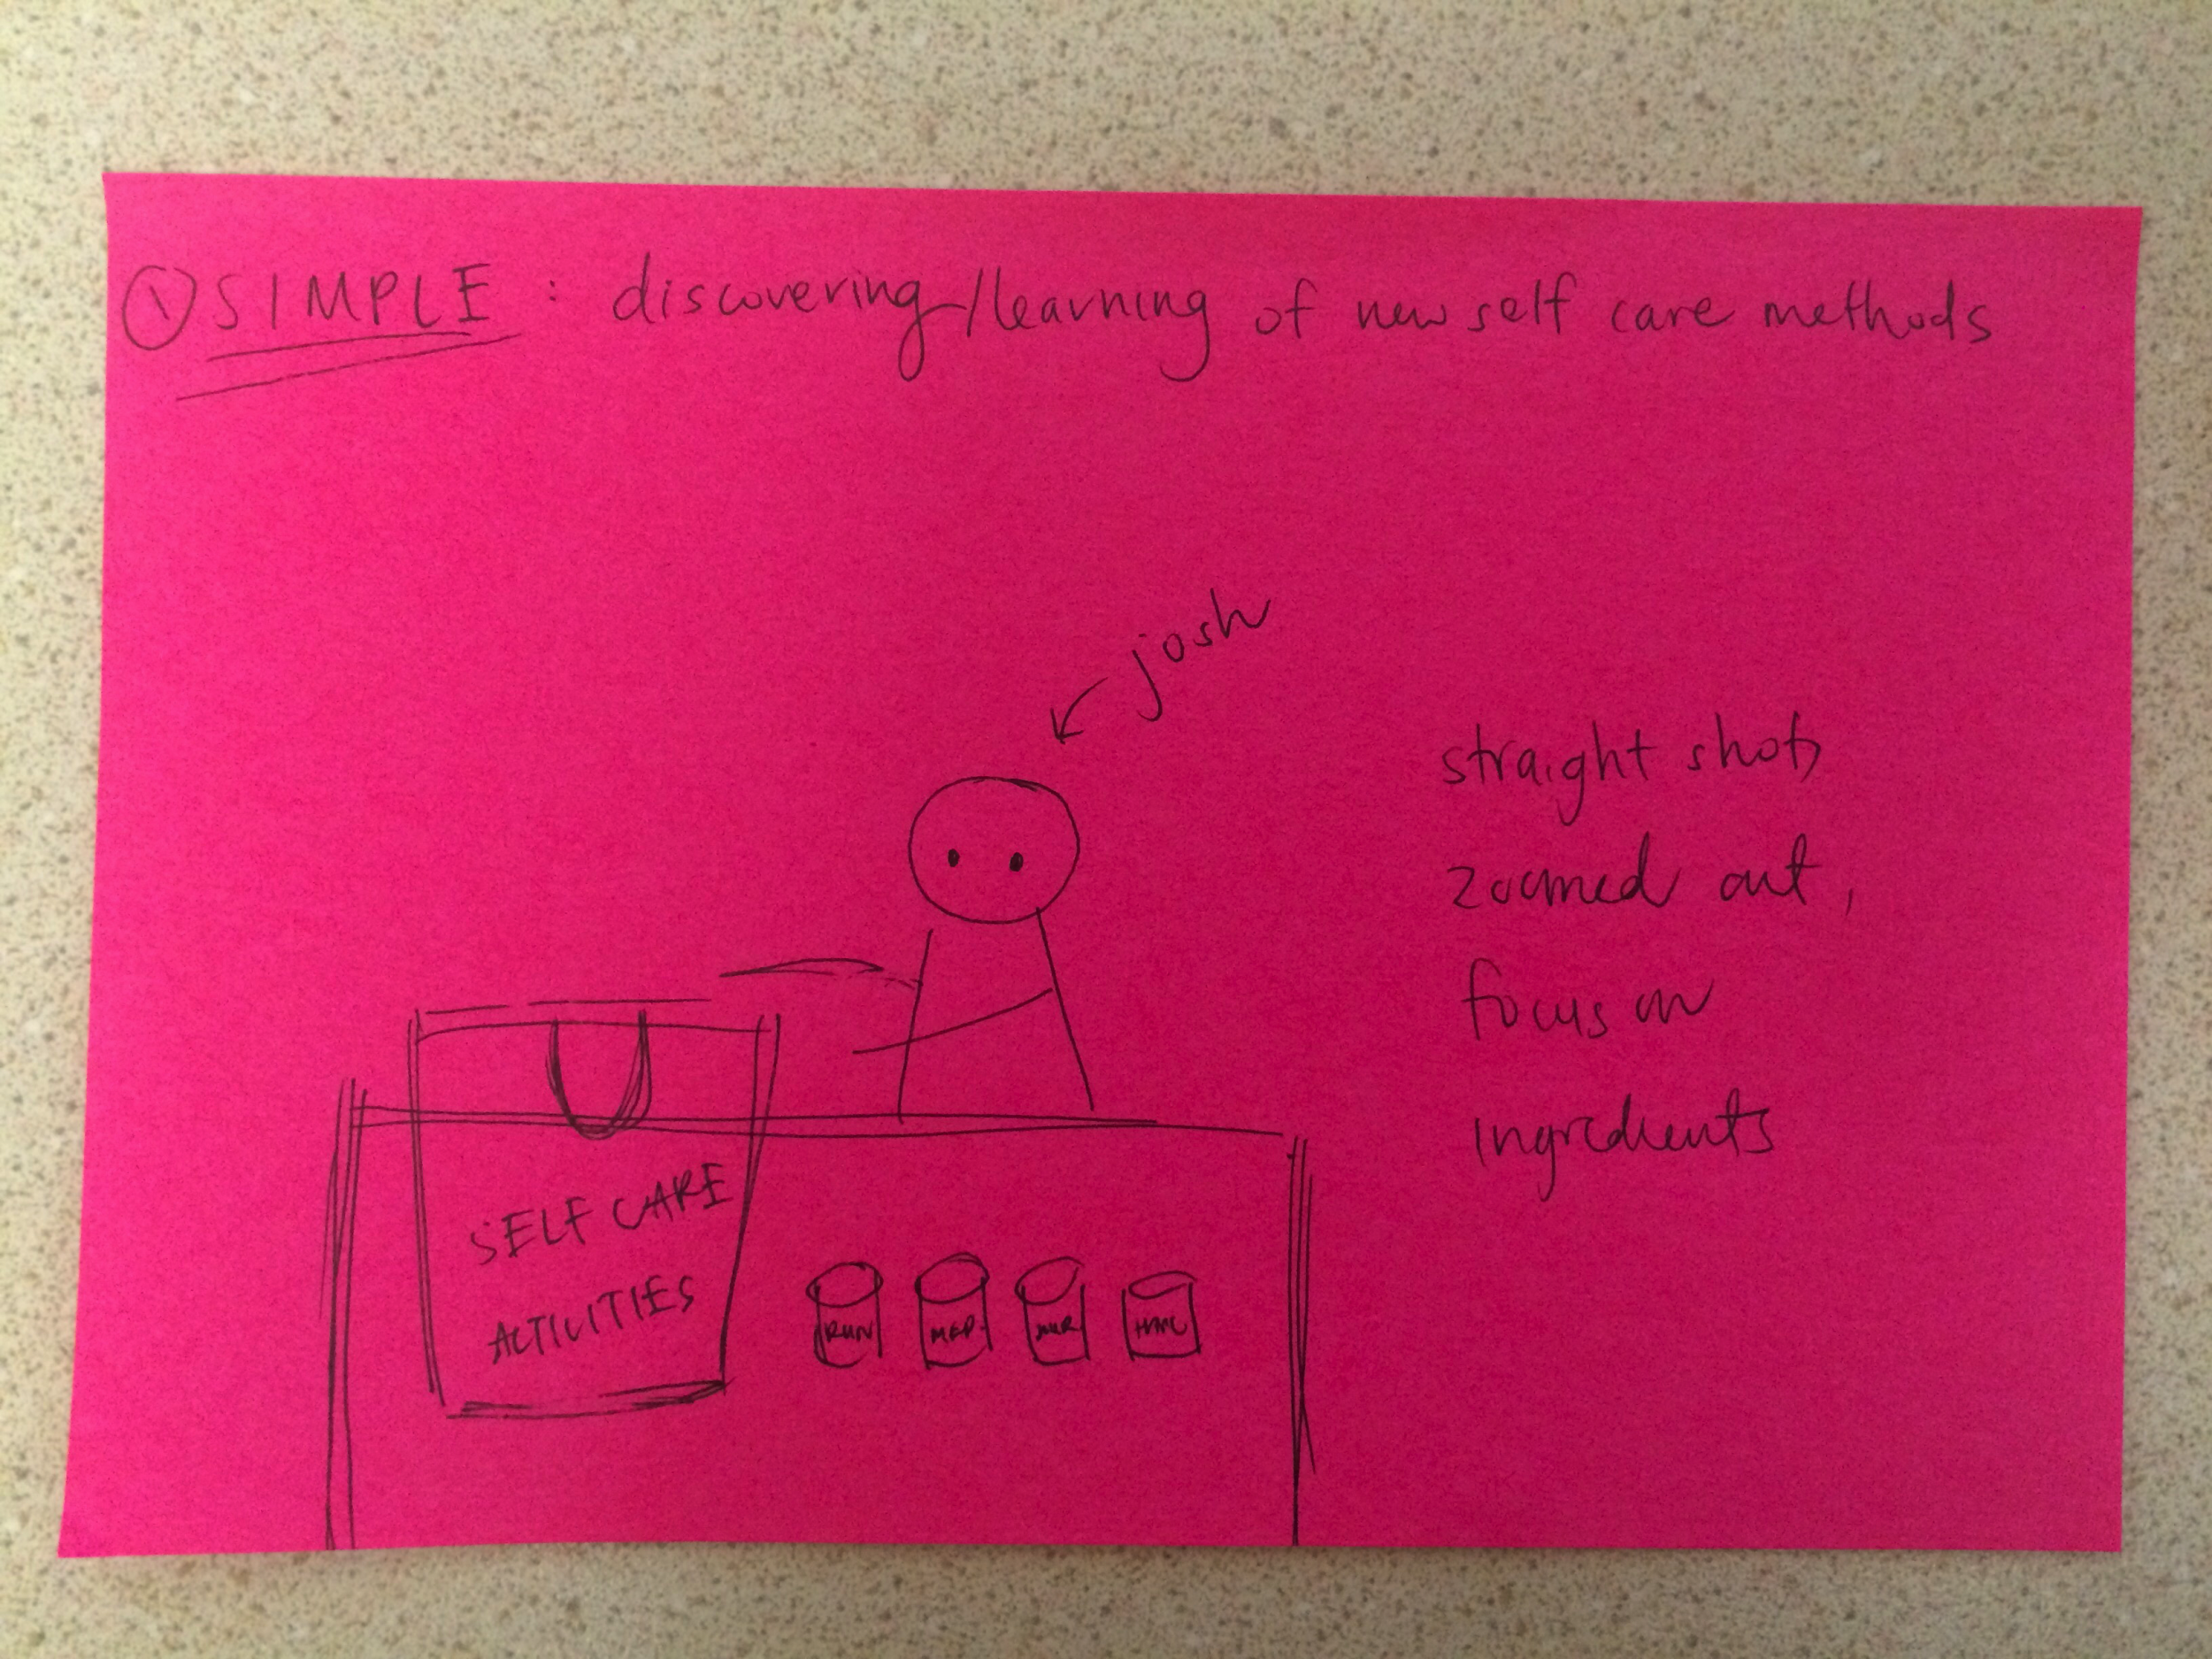 ① SIMPLE : discovering/learning of new self care methods
josh
straight shots
zoomed out,
focus on
ingredients
SELF CARE
ACTIVITIES
RUN